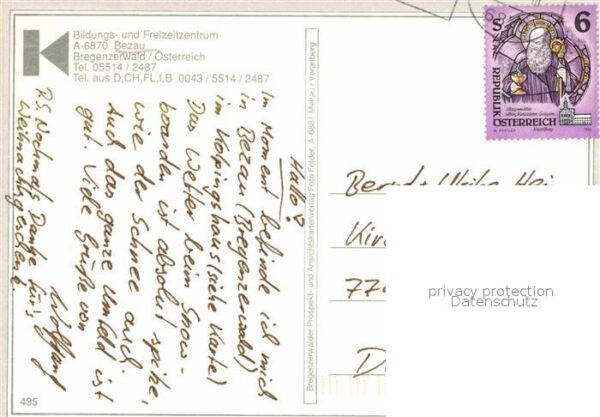 Bildungs- und Freizeitzentrum
A-6870 Bezau
Bregenzerwald / Österreich
Tel. 05514 / 2487
Tel. aus D,CH,FL,I,B 0043 / 5514 / 2487
Hallo!
Im Moment befinde ich mich
in Bezau (Bregenzerwald)
im Kolpinghaus (siehe Karte)
Das Wetter beim Snow-
boarden ist absolut spitze,
wie der Schnee auch.
Auch das ganze Umfeld ist
gut. Viele Grüße von
Wolfgang
P.S. Nochmals Danke für's
Weihnachtsgeschenk!
495
Bregenzerwälder Prospekt- und Ansichtskartenverlag Foto Felder, A-6881 Mellau / Vorarlberg
S 6
REPUBLIK
ÖSTERREICH
Bernd + Ulrike
Kir
77
D
privacy protection
Datenschutz